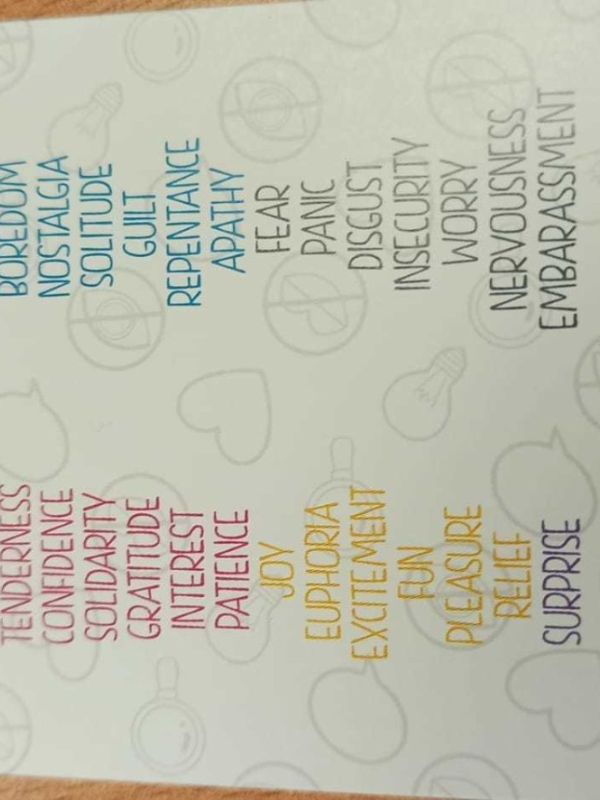 TENDERNESS
CONFIDENCE
SOLIDARITY
GRATITUDE
INTEREST
PATIENCE
JOY
EUPHORIA
EXCITEMENT
FUN
PLEASURE
RELIEF
SURPRISE
BOREDOM
NOSTALGIA
SOLITUDE
GUILT
REPENTANCE
APATHY
FEAR
PANIC
DISGUST
INSECURITY
WORRY
NERVOUSNESS
EMBARASSMENT